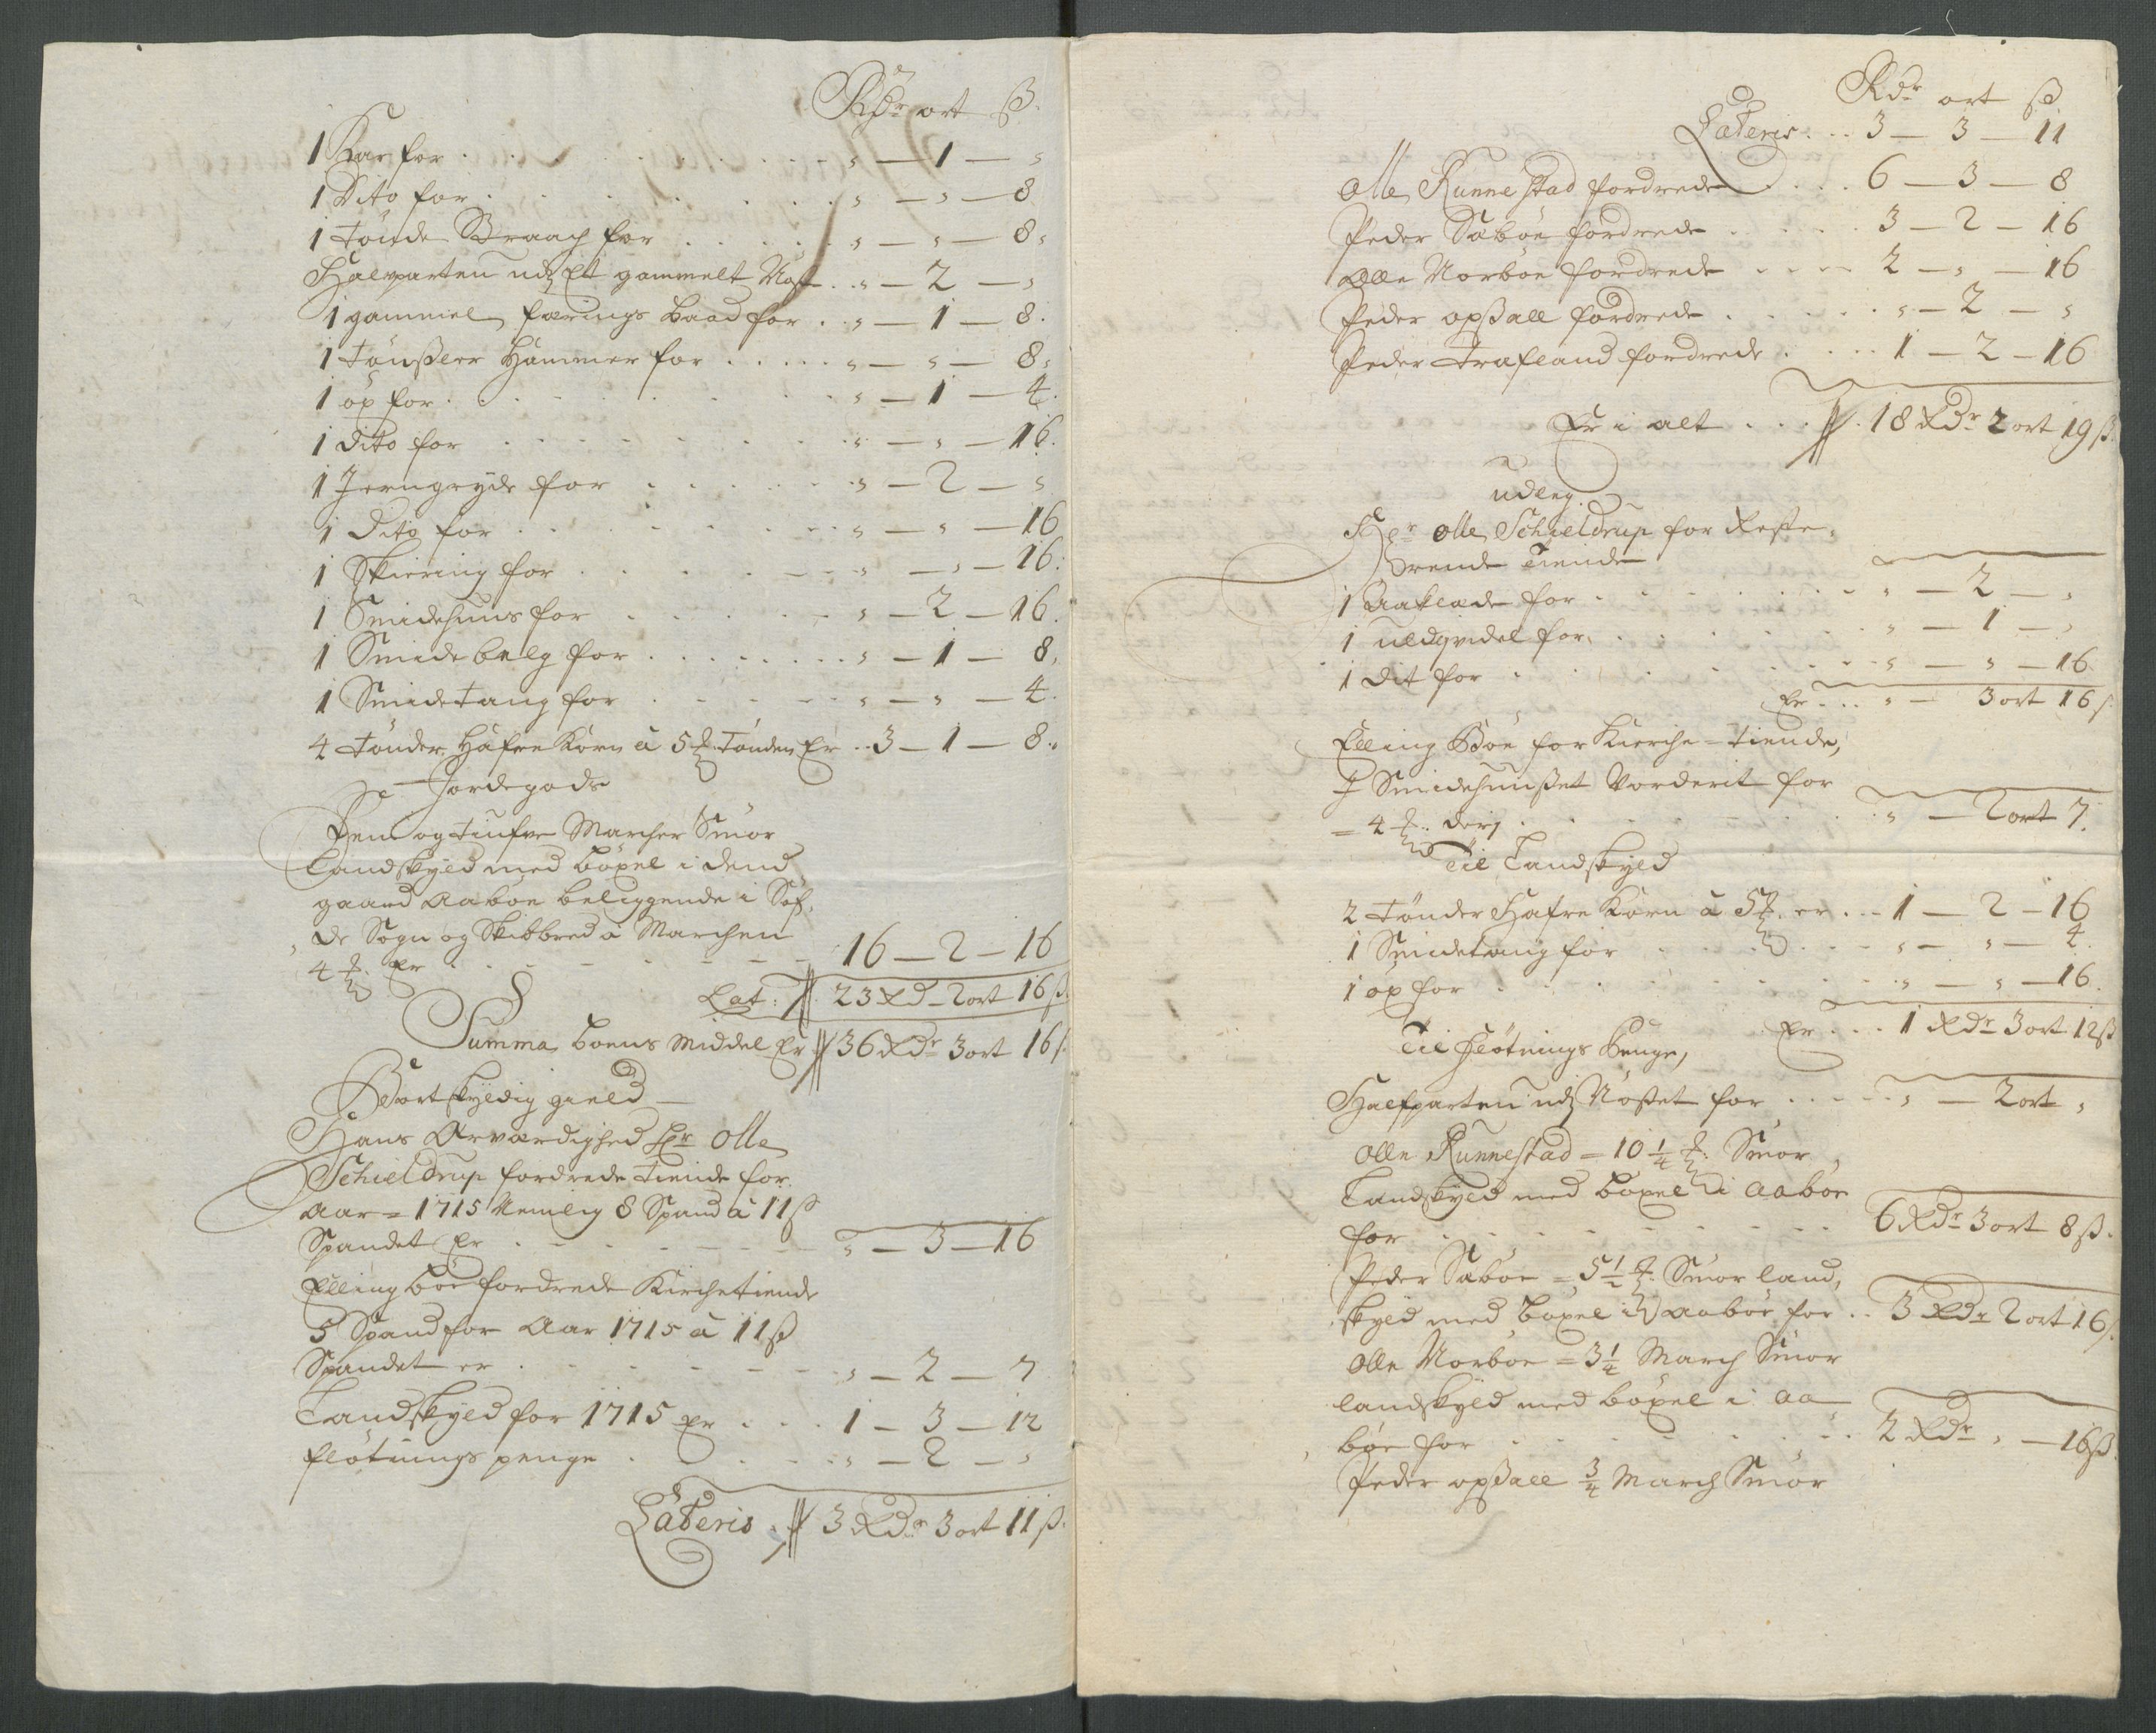 Rdr ort ß.
1 Kar for . . . „ — 1 — „
1 Dito for . . . „ — „ — 8
1 tönde Braach for . . . „ — „ — 8.
Halvparten udj Et gammelt Nöst . . „ — 2 — „
1 gammel færings baad for . . „ — 1 — 8.
1 Hammer for . . . „ — „ — 8.
1 öx for . . . „ — 1 — 4.
1 dito for . . . „ — „ — 16.
1 Jerngryde for . . . „ — 2 — „
1 Dito for . . . „ — „ — 16
1 Skiering for . . . „ — „ — 16.
1 Smidehuus for . . . „ — 2 — 16.
1 Smidebelg for . . . „ — 1 — 8.
1 Smidetang for . . . „ — „ — 4.
4 tönder Hafre Korn à 5 tönden Er . . 3 — 1 — 8.
Jordegods
Fem og tiufve Marcher Smör
Landskyld med böxel i dend
gaard Aaböe beliggende i
de Sogn og Skibbred à Marchen
4 Er . . . 16 — 2 — 16
Lat: 23 Rd 2 ort 16 ß.
Summa boens Middel Er 36 Rdr 3 ort 16 ß.
Bortskyldig gield
Hans Ærværdighed Hr Olle
Schieldrup fordrede tiende for
Aar = 1715 Nemlig 8 Spand à 11 ß
Spandet Er . . . „ — 3 — 16
Elling böe fordrede Kirchetiende
5 Spand for Aar 1715 à 11 ß
Spandet er . . . „ — 2 — 7
Landskyld for 1715 Er . . . 1 — 3 — 12
flötnings penge . . . „ — 2 — „
Lateris . 3 Rdr 3 ort 11 ß.
Rdr ort ß.
Lateris . . . 3 — 3 — 11
Olle Runnestad fordrede . . . 6 — 3 — 8
Peder Saböe fordrede . . . 3 — 2 — 16
Olle Norböe fordrede . . . 2 — „ — 16
Peder opßall fordrede . . . „ — 2 — „
Peder Trafland fordrede . . . 1 — 2 — 16
Er i alt . . . 18 Rdr 2 ort 19 ß.
udleg.
Her Olle Schieldrup for Reste-
rende Tiende
1 Aaklæde for . . . „ — 2 — „
1 uldqvidel for . . . „ — 1 — „
1 dit for . . . „ — „ — 16
Er . . . „ — 3 ort 16 ß
Elling Böe for Kierche-tiende,
I Smidehuußet Vorderit for
= 4 derj . . . „ — 2 ort 7.
Til Landskyld
2 tönder Hafre Korn à 5 er . . . 1 — 2 — 16
1 Smidetang for . . . „ — „ — 4.
1 öx for . . . „ — „ — 16.
Er . . . 1 Rdr 3 ort 12 ß
Til flötnings Penge,
Halfparten udj Nöstet for . . . „ — 2 ort „
Olle Runnestad = 10 1/4 Smör
Landskyld med böxel i Aaböe
for . . . 6 Rdr 3 ort 8 ß.
Peder Saböe = 5 1/2 Smör land,
skyld med böxel i Aaböe for . . 3 Rdr 2 ort 16 ß.
Olle Norböe = 3 1/4 March Smör
landskyld med böxel i Aa
böe for . . . 2 Rdr „ — 16 ß.
Peder opßall 3/4 March Smör